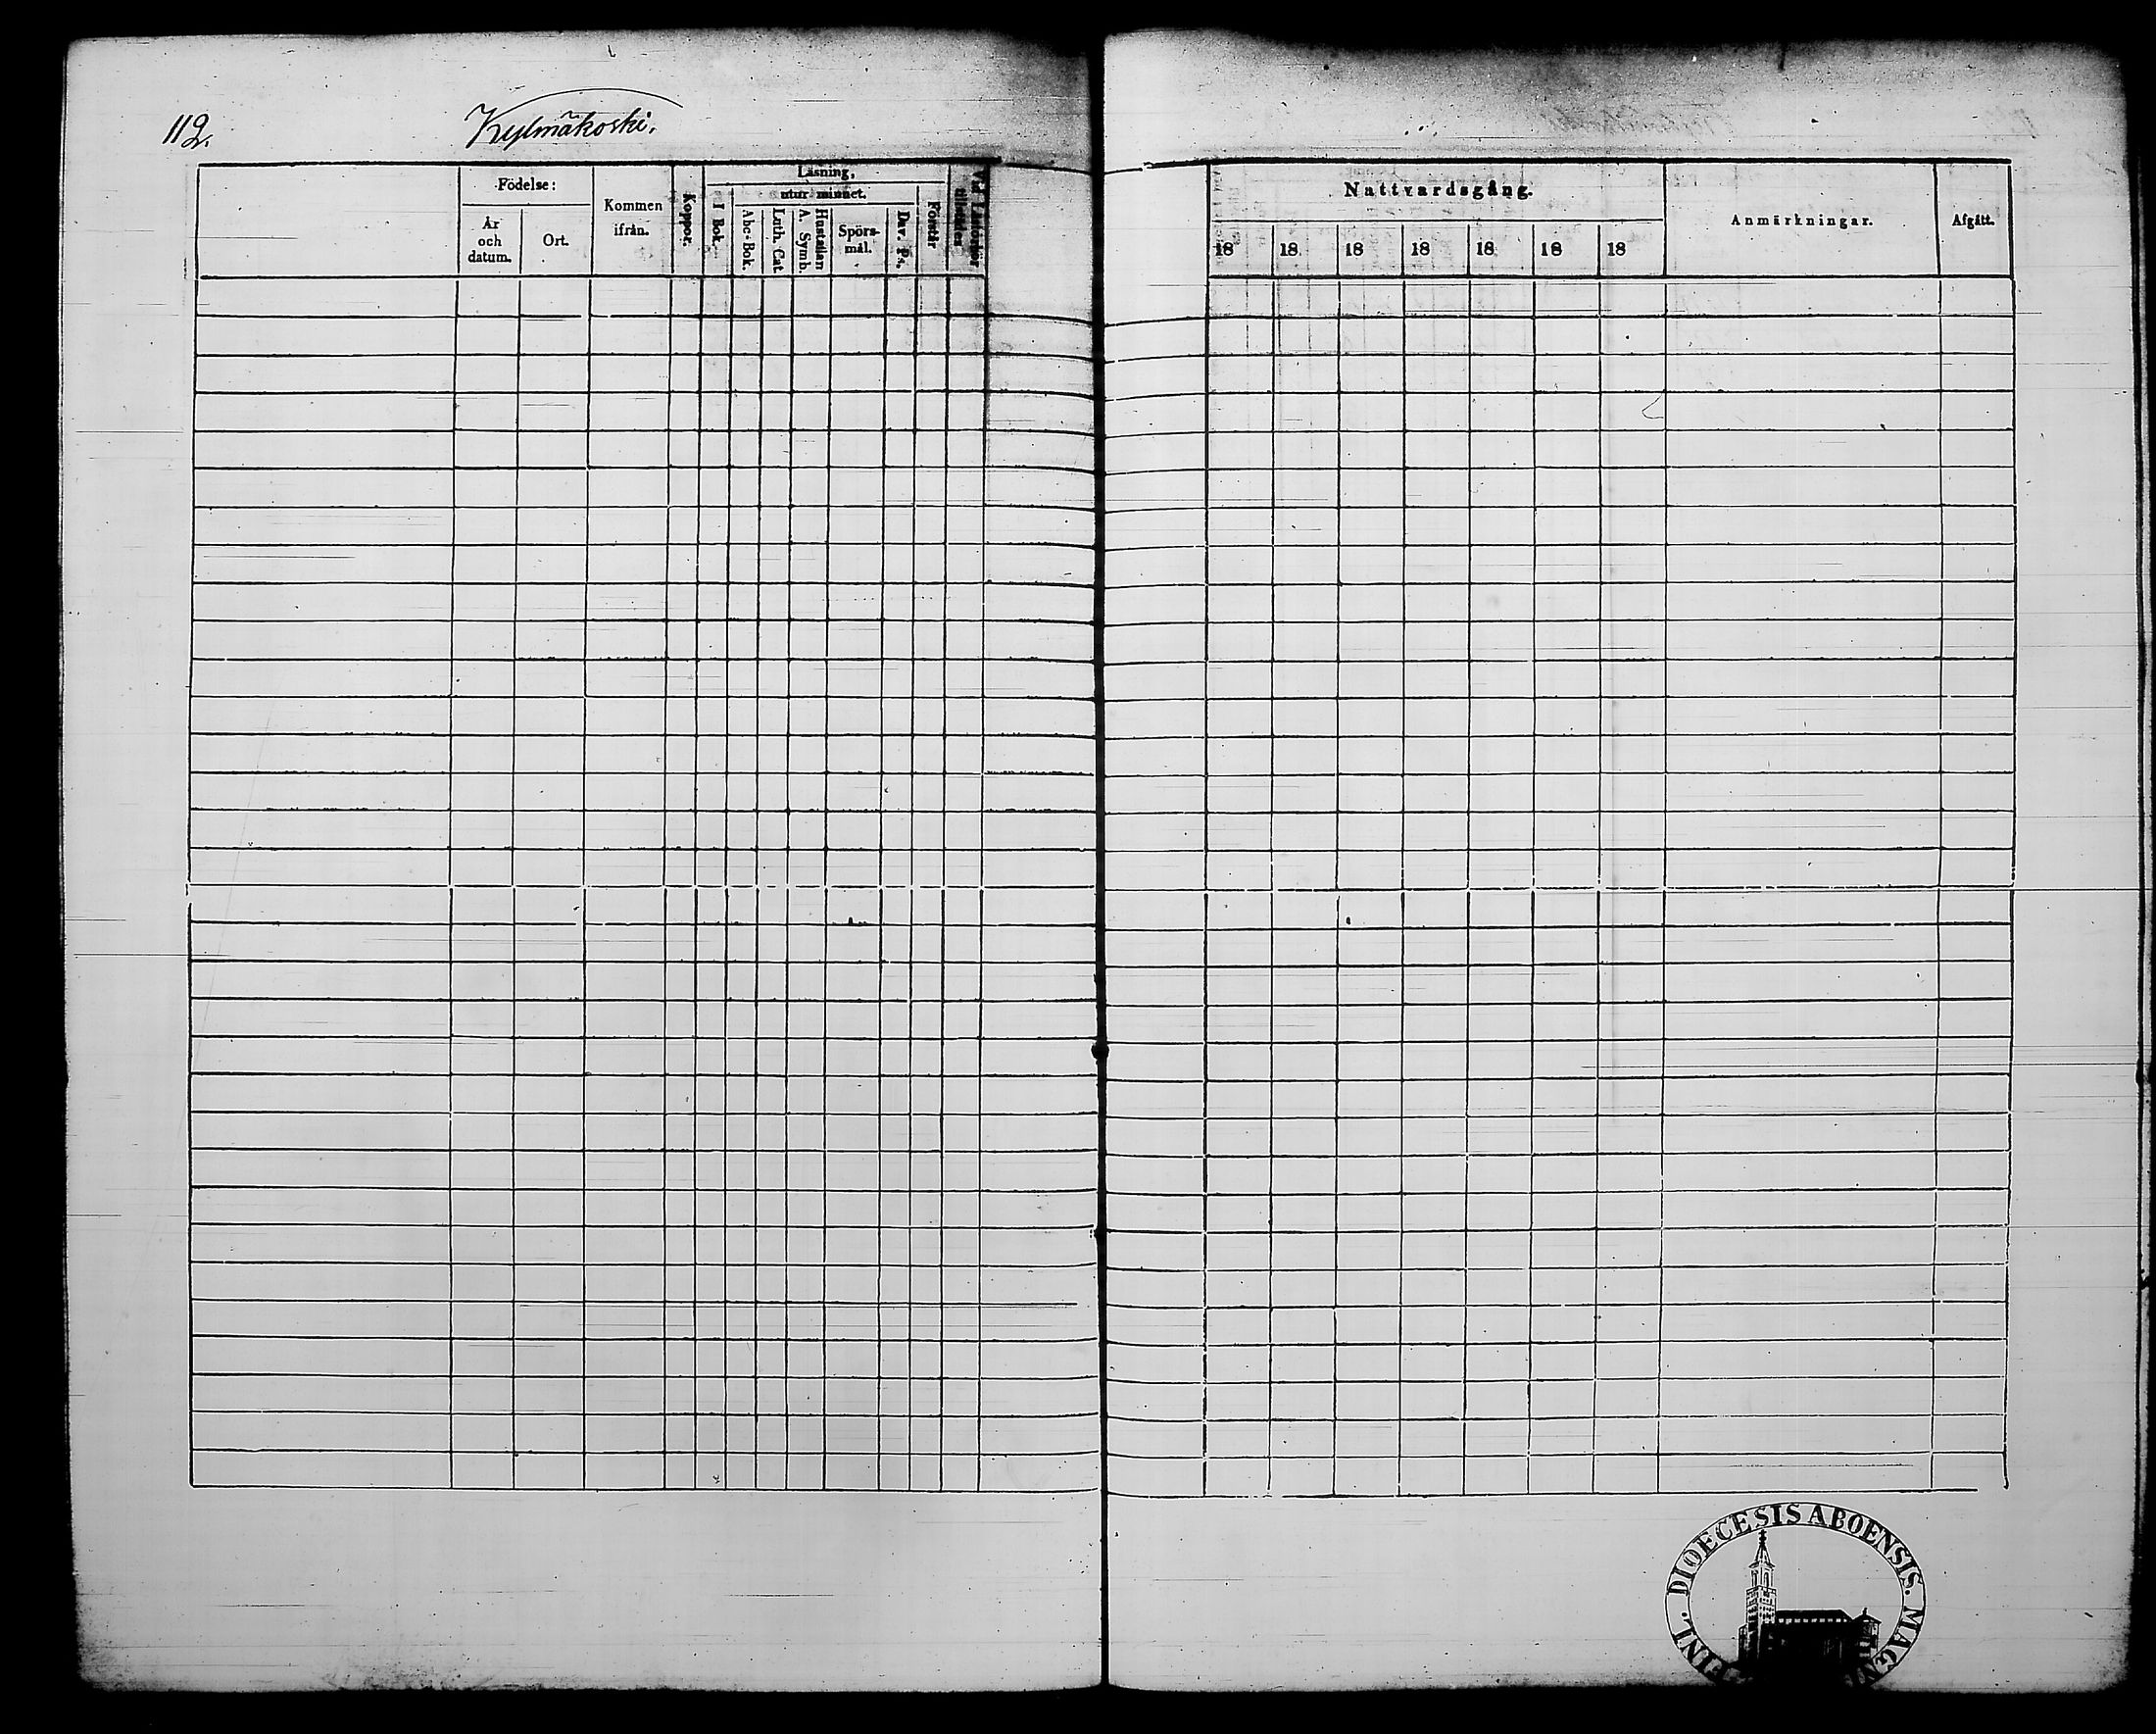 112.
Kylmäkoski.
Födelse:
År
och
datum.
Ort.
Kommen
ifrån.
Koppor.
Läsning,
utur minnet.
I Bok.
Abc-Bok.
Luth. Cat.
Hustaflan
A. Symb.
Spörs-
mål.
Dav. Ps.
Förstår
Vid Läsförhör
Nattvardsgång.
18 18 18 18 18 18 18
Anmärkningar.
Afgått.
FINL. DIOECESIS ABOENSIS. MAGN